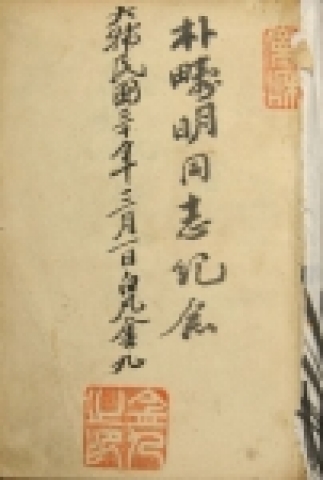 朴疇明同志紀念
大韓民國三十年三月一日白凡金九
金九之印